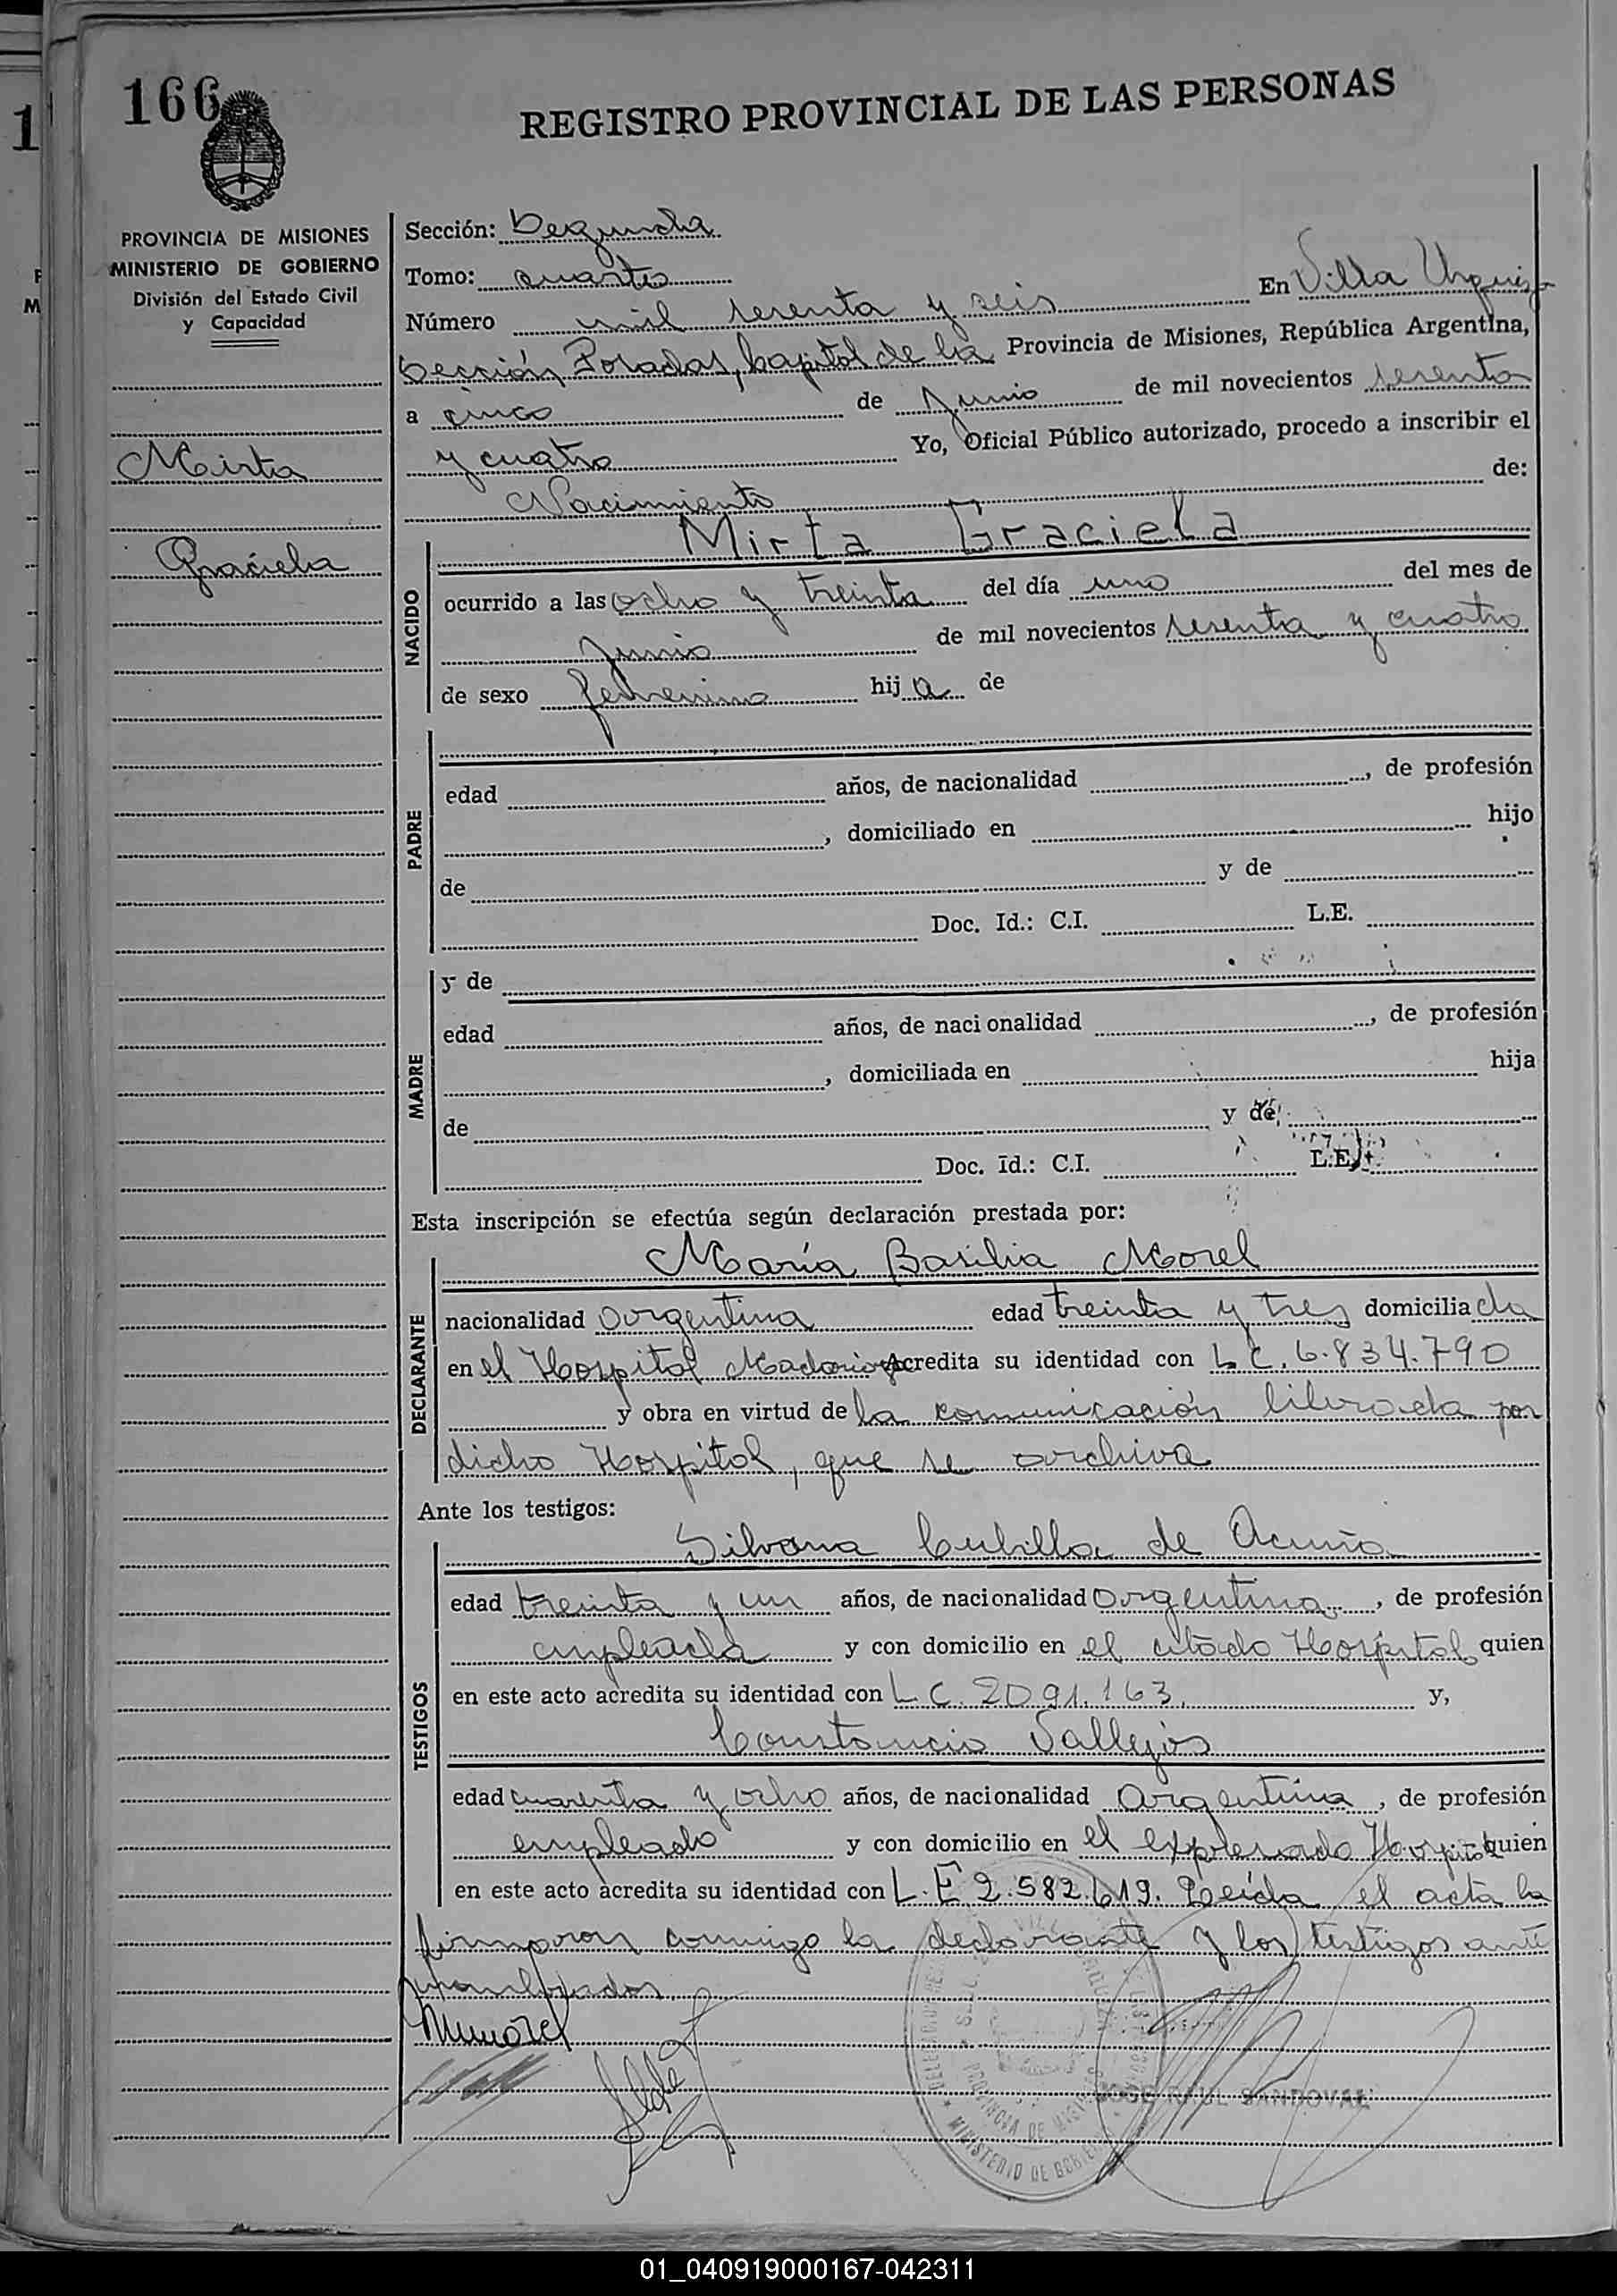 166
REGISTRO PROVINCIAL DE LAS PERSONAS
PROVINCIA DE MISIONES
MINISTERIO DE GOBIERNO
División del Estado Civil
y Capacidad
Mirta
Graciela
Sección: Segunda
Tomo: cuarto
Número mil sesenta y seis En Villa Urquiza
Sección Posadas, Capital de la Provincia de Misiones, República Argentina,
a cinco de Junio de mil novecientos sesenta
y cuatro Yo, Oficial Público autorizado, procedo a inscribir el
Nacimiento de:
NACIDO
Mirta Graciela
ocurrido a las ocho y treinta del día uno del mes de
Junio de mil novecientos sesenta y cuatro
de sexo femenino hija de
PADRE
edad años, de nacionalidad , de profesión
, domiciliado en hijo
de y de
Doc. Id.: C.I. L.E.
MADRE
y de
edad años, de nacionalidad , de profesión
, domiciliada en hija
de y de
Doc. Id.: C.I. L.E.
Esta inscripción se efectúa según declaración prestada por:
DECLARANTE
María Basilia Morel
nacionalidad Argentina edad treinta y tres domiciliada
en el Hospital Madariaga acredita su identidad con L.C. 6.834.790
y obra en virtud de la comunicación librada por
dicho Hospital, que se archiva
Ante los testigos:
TESTIGOS
Silvana Cubilla de Acuña
edad treinta y un años, de nacionalidad Argentina, de profesión
empleada y con domicilio en el citado Hospital quien
en este acto acredita su identidad con L.C. 2091.163, y,
Constancio Vallejos
edad cuarenta y ocho años, de nacionalidad Argentina, de profesión
empleado y con domicilio en el expresado Hospital quien
en este acto acredita su identidad con L.E 2.582.619. Leída el acta la
firmaron conmigo la declarante y los testigos ante
nombrados
Mmorel
JOSE RAUL SANDOVAL
PROVINCIA DE MISIONES
MINISTERIO DE GOBIERNO
01_040919000167-042311